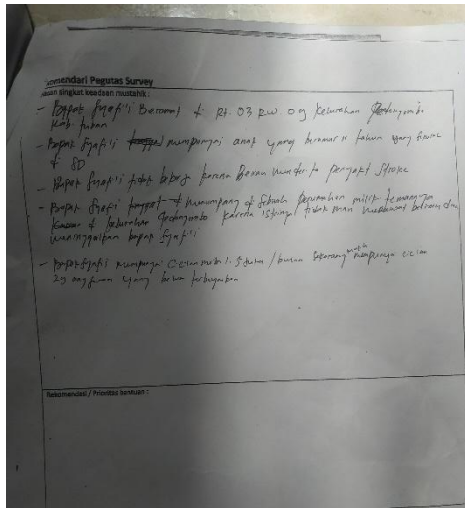 omendari Pegutas Survey
singkat keadaan mustahik :
- Bapak Syafi'i Beramat di Rt. 03 RW. 09 Kelurahan
Kab Tuban
- Bapak Syafi'i mempunyai anak yang berumur 11 tahun yang
di SD
- Bapak Syafi'i tidak bekerja karena Beliau menderita penyakit Stroke
- Bapak Syafi'i menumpang di Sebuah perumahan milik temannya
di kelurahan karena istrinya tidak mau merawat beliau dan
meninggalkan bapak Syafi'i
- Bapak Syafi'i mempunyai cicilan 1.5 juta / bulan Sekarang masih mempunyai cicilan
29 angsuran yang belum terbayarkan
Rekomendasi / Prioritas bantuan :